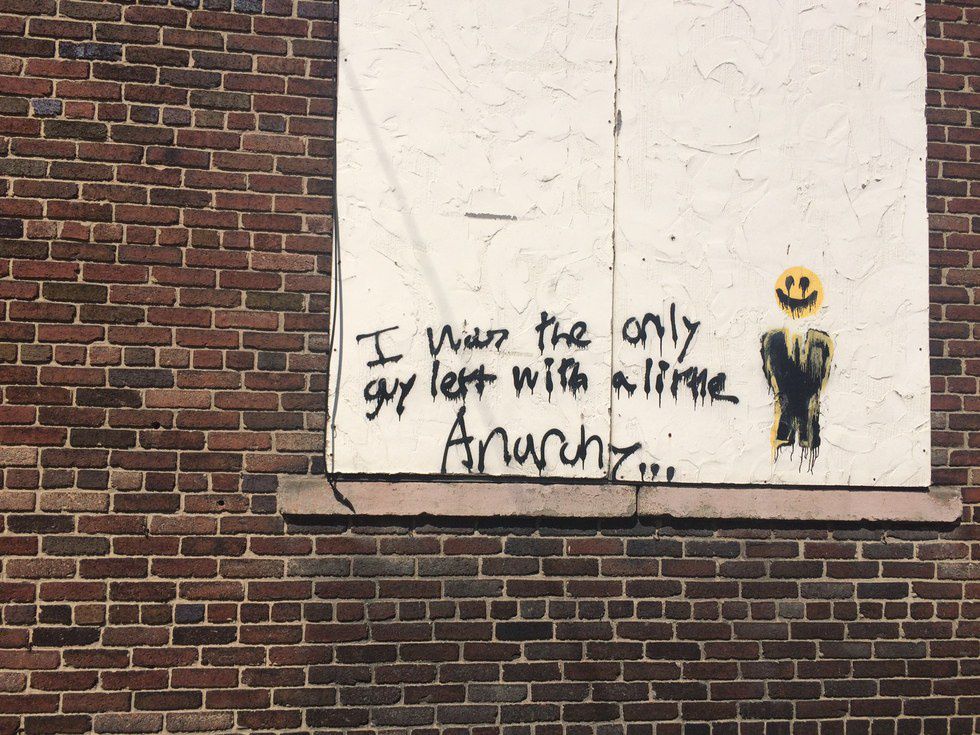 I was the only
guy left with a little
Anarchy...